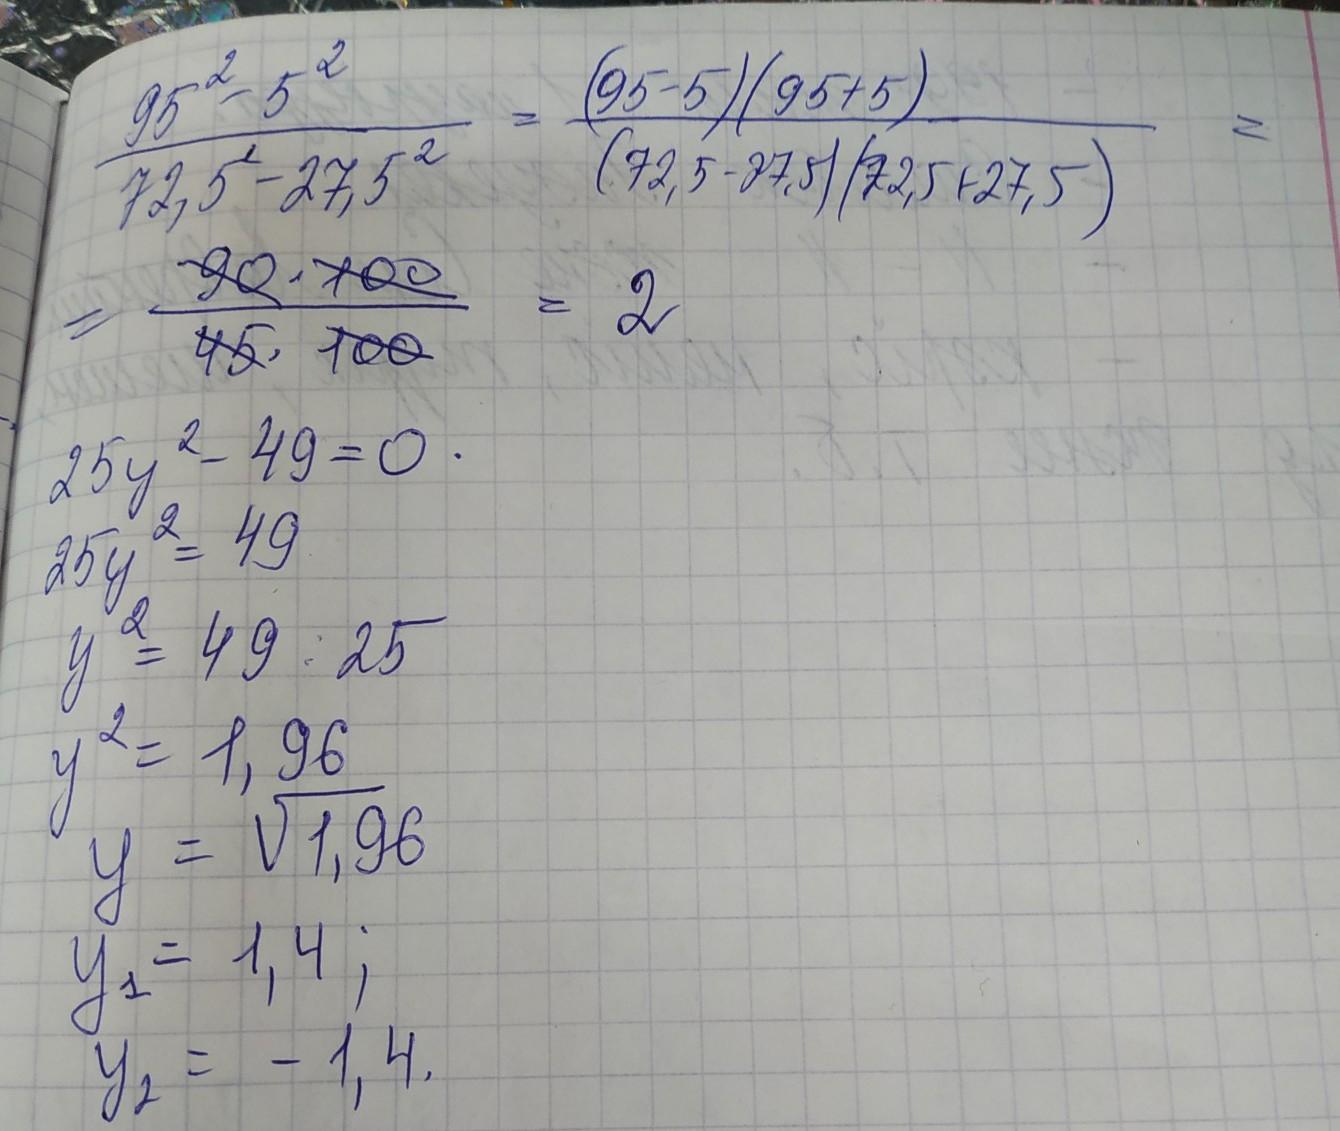 95² - 5² / 72,5² - 27,5² = (95-5)(95+5) / (72,5-27,5)(72,5+27,5) =
= 90 · 100 / 45 · 100 = 2
25y² - 49 = 0.
25y² = 49
y² = 49 : 25
y² = 1,96
y = √1,96
y₁ = 1,4;
y₂ = - 1,4.